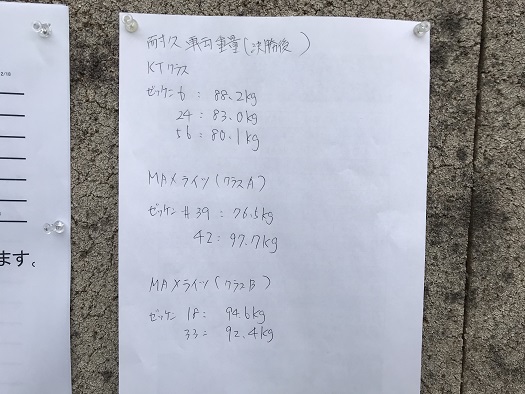 耐久 車両重量(決勝後)
KTクラス
ゼッケン 6 : 88.2kg
24 : 83.0kg
56 : 80.1kg
MAXライツ(クラスA)
ゼッケン #39 : 76.5kg
42 : 97.7kg
MAXライツ(クラスB)
ゼッケン 18 : 94.6kg
33 : 92.4kg
ます。